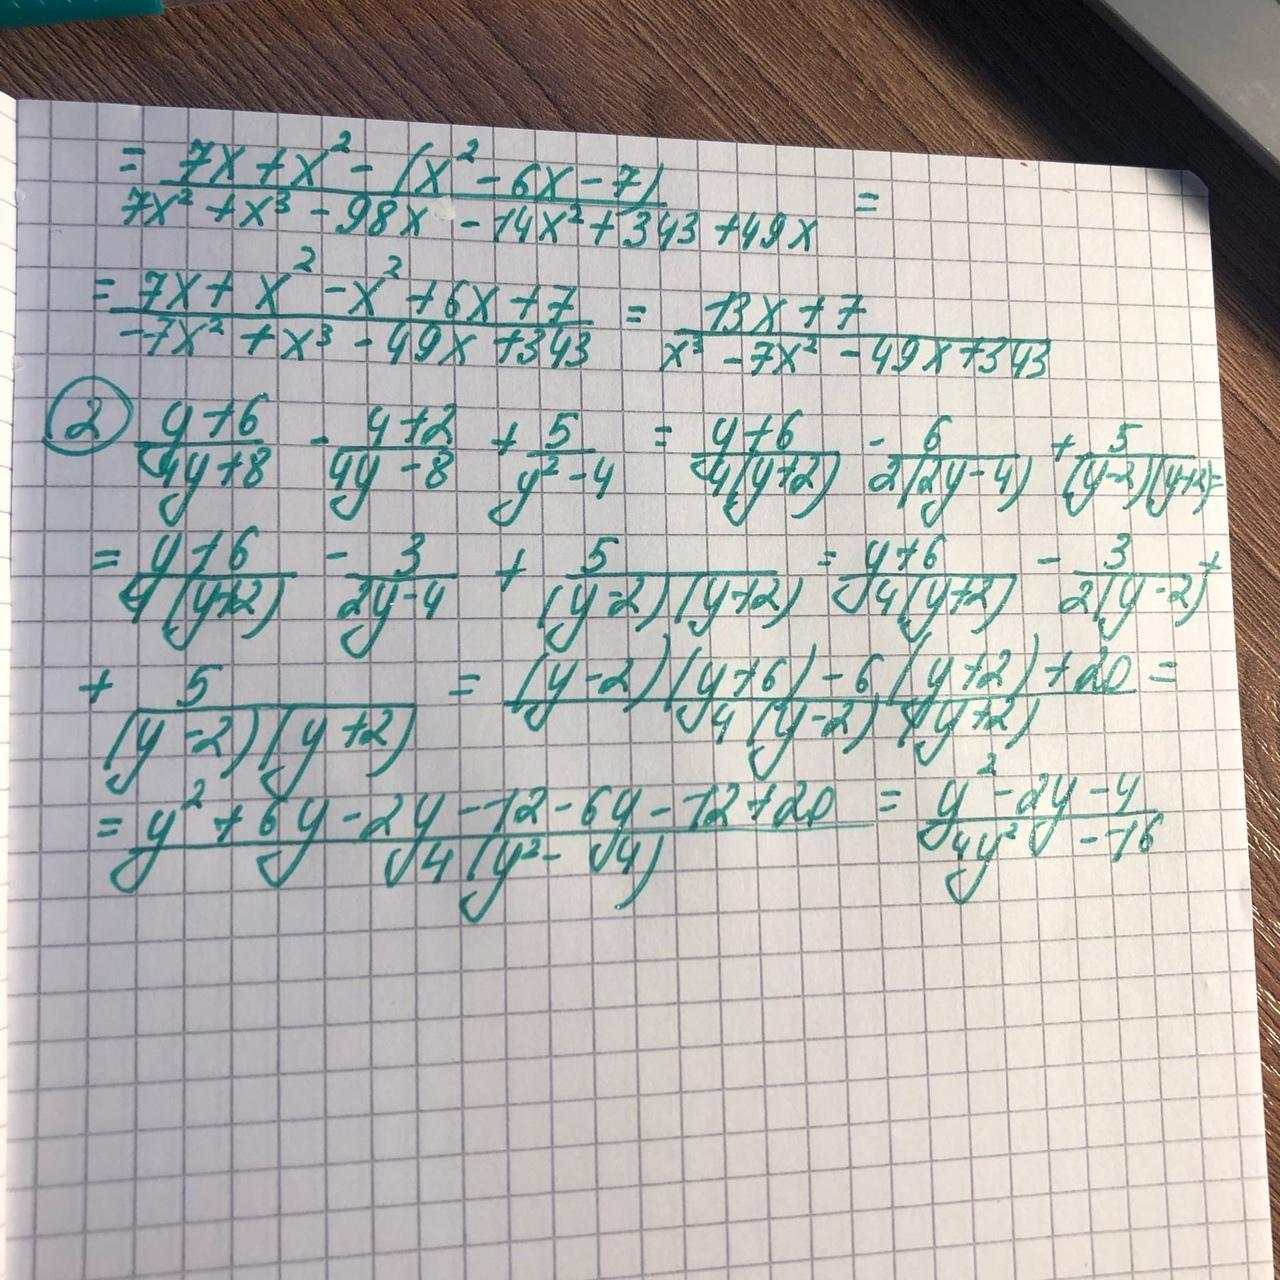 = (7x + x² - (x² - 6x - 7)) / (7x² + x³ - 98x - 14x² + 343 + 49x) =
= (7x + x² - x² + 6x + 7) / (-7x² + x³ - 49x + 343) = (13x + 7) / (x³ - 7x² - 49x + 343)
② (y+6)/(4y+8) - (4+2)/(4y-8) + 5/(y²-4) = (y+6)/(4(y+2)) - 6/(2(2y-4)) + 5/((y-2)(y+2)) =
= (y+6)/(4(y+2)) - 3/(2y-4) + 5/((y-2)(y+2)) = (y+6)/(4(y+2)) - 3/(2(y-2)) +
+ 5/((y-2)(y+2)) = ((y-2)(y+6) - 6(y+2) + 20)/(4(y-2)(y+2)) =
= (y² + 6y - 2y - 12 - 6y - 12 + 20)/(4(y² - 4)) = (y² - 2y - 4)/(4y² - 16)